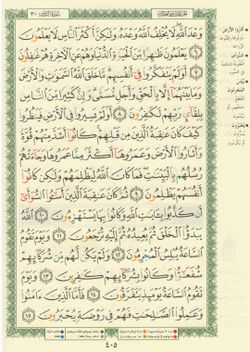 وَعْدَ اللَّهِ لَا يُخْلِفُ اللَّهُ وَعْدَهُ وَلَٰكِنَّ أَكْثَرَ النَّاسِ لَا يَعْلَمُونَ ٦
يَعْلَمُونَ ظَاهِرًا مِّنَ الْحَيَاةِ الدُّنْيَا وَهُمْ عَنِ الْآخِرَةِ هُمْ غَافِلُونَ
٧ أَوَلَمْ يَتَفَكَّرُوا فِي أَنفُسِهِم مَّا خَلَقَ اللَّهُ السَّمَاوَاتِ وَالْأَرْضَ
وَمَا بَيْنَهُمَا إِلَّا بِالْحَقِّ وَأَجَلٍ مُّسَمًّى وَإِنَّ كَثِيرًا مِّنَ النَّاسِ بِلِقَاءِ
رَبِّهِمْ لَكَافِرُونَ ٨ أَوَلَمْ يَسِيرُوا فِي الْأَرْضِ فَيَنظُرُوا
كَيْفَ كَانَ عَاقِبَةُ الَّذِينَ مِن قَبْلِهِمْ كَانُوا أَشَدَّ مِنْهُمْ قُوَّةً
وَأَثَارُوا الْأَرْضَ وَعَمَرُوهَا أَكْثَرَ مِمَّا عَمَرُوهَا وَجَاءَتْهُمْ
رُسُلُهُم بِالْبَيِّنَاتِ فَمَا كَانَ اللَّهُ لِيَظْلِمَهُمْ وَلَٰكِن كَانُوا
أَنفُسَهُمْ يَظْلِمُونَ ٩ ثُمَّ كَانَ عَاقِبَةَ الَّذِينَ أَسَاءُوا السُّوأَىٰ
أَن كَذَّبُوا بِآيَاتِ اللَّهِ وَكَانُوا بِهَا يَسْتَهْزِئُونَ ١٠ اللَّهُ
يَبْدَأُ الْخَلْقَ ثُمَّ يُعِيدُهُ ثُمَّ إِلَيْهِ تُرْجَعُونَ ١١ وَيَوْمَ تَقُومُ
السَّاعَةُ يُبْلِسُ الْمُجْرِمُونَ ١٢ وَلَمْ يَكُن لَّهُم مِّن شُرَكَائِهِمْ
شُفَعَاءُ وَكَانُوا بِشُرَكَائِهِمْ كَافِرِينَ ١٣ وَيَوْمَ
تَقُومُ السَّاعَةُ يَوْمَئِذٍ يَتَفَرَّقُونَ ١٤ فَأَمَّا الَّذِينَ آمَنُوا
وَعَمِلُوا الصَّالِحَاتِ فَهُمْ فِي رَوْضَةٍ يُحْبَرُونَ ١٥
٤٠٥